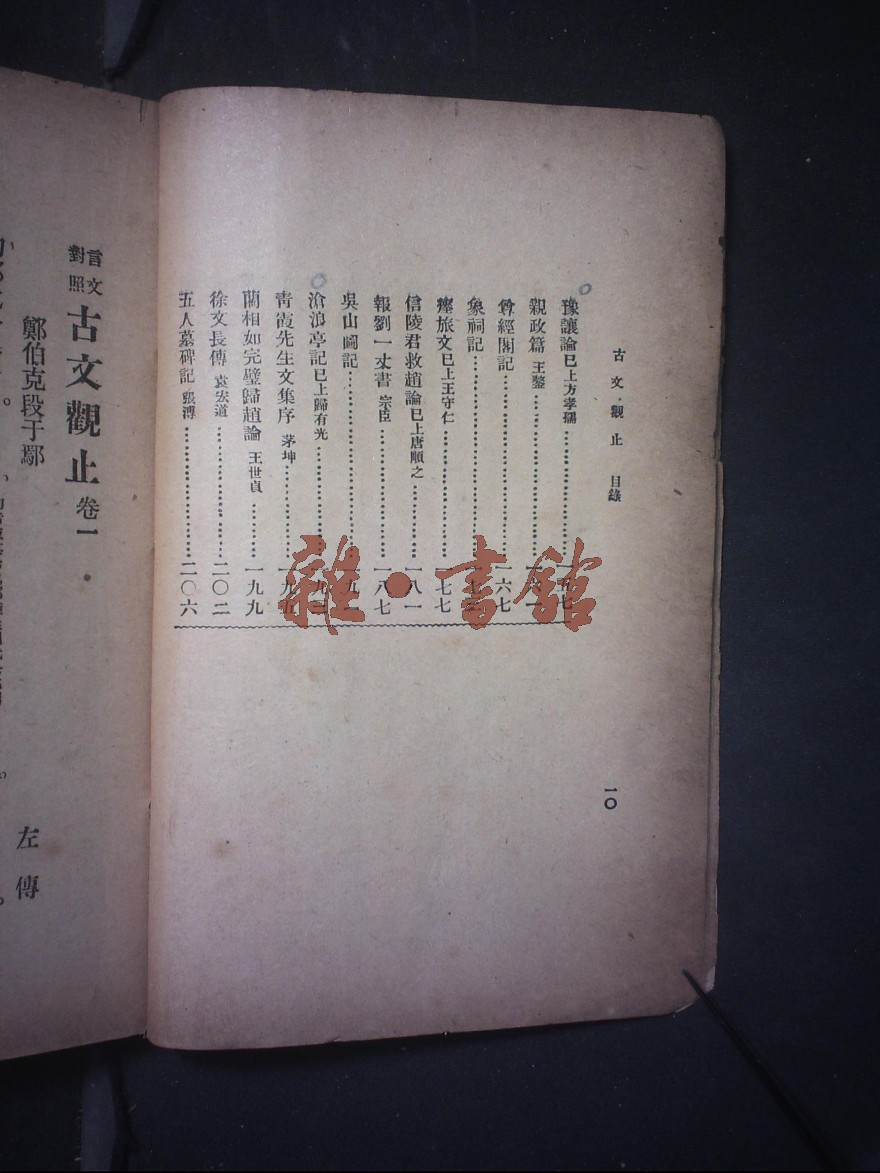 古文觀止 目錄
豫讓論已上方孝孺…………一五七
親政篇 王鏊…………一六一
尊經閣記…………一六七
象祠記…………一七三
瘞旅文已上王守仁…………一七七
信陵君救趙論已上唐順之…………一八一
報劉一丈書 宗臣…………一八七
吳山圖記…………一九一
滄浪亭記已上歸有光…………
青霞先生文集序 茅坤…………一九五
藺相如完璧歸趙論 王世貞…………一九九
徐文長傳 袁宏道…………二〇二
五人墓碑記 張溥…………二〇六
一〇
雜·書館
言文對照 古文觀止 卷一
鄭伯克段于鄢 左傳